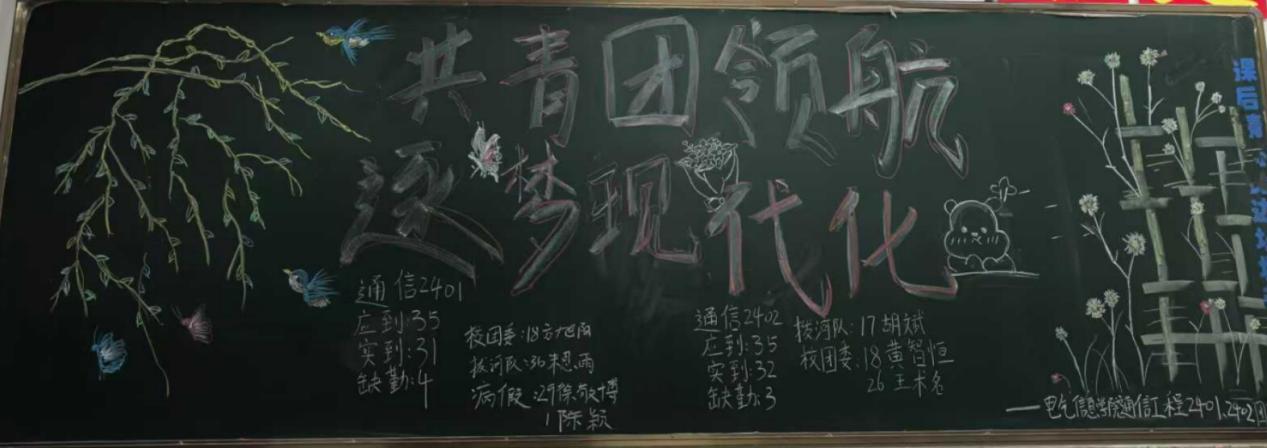 共青团领航
逐梦现代化
通信2401
应到:35
实到:31
缺勤:4
校团委:18方旭雨
拔河队:30朱思雨
病假:29徐敬博
1陈颖
通信2402
应到:35
实到:32
缺勤:3
拔河队:17胡斌
校团委:18黄智恒
26王术名
课后青
——电气信息学院通信工程2401.2402